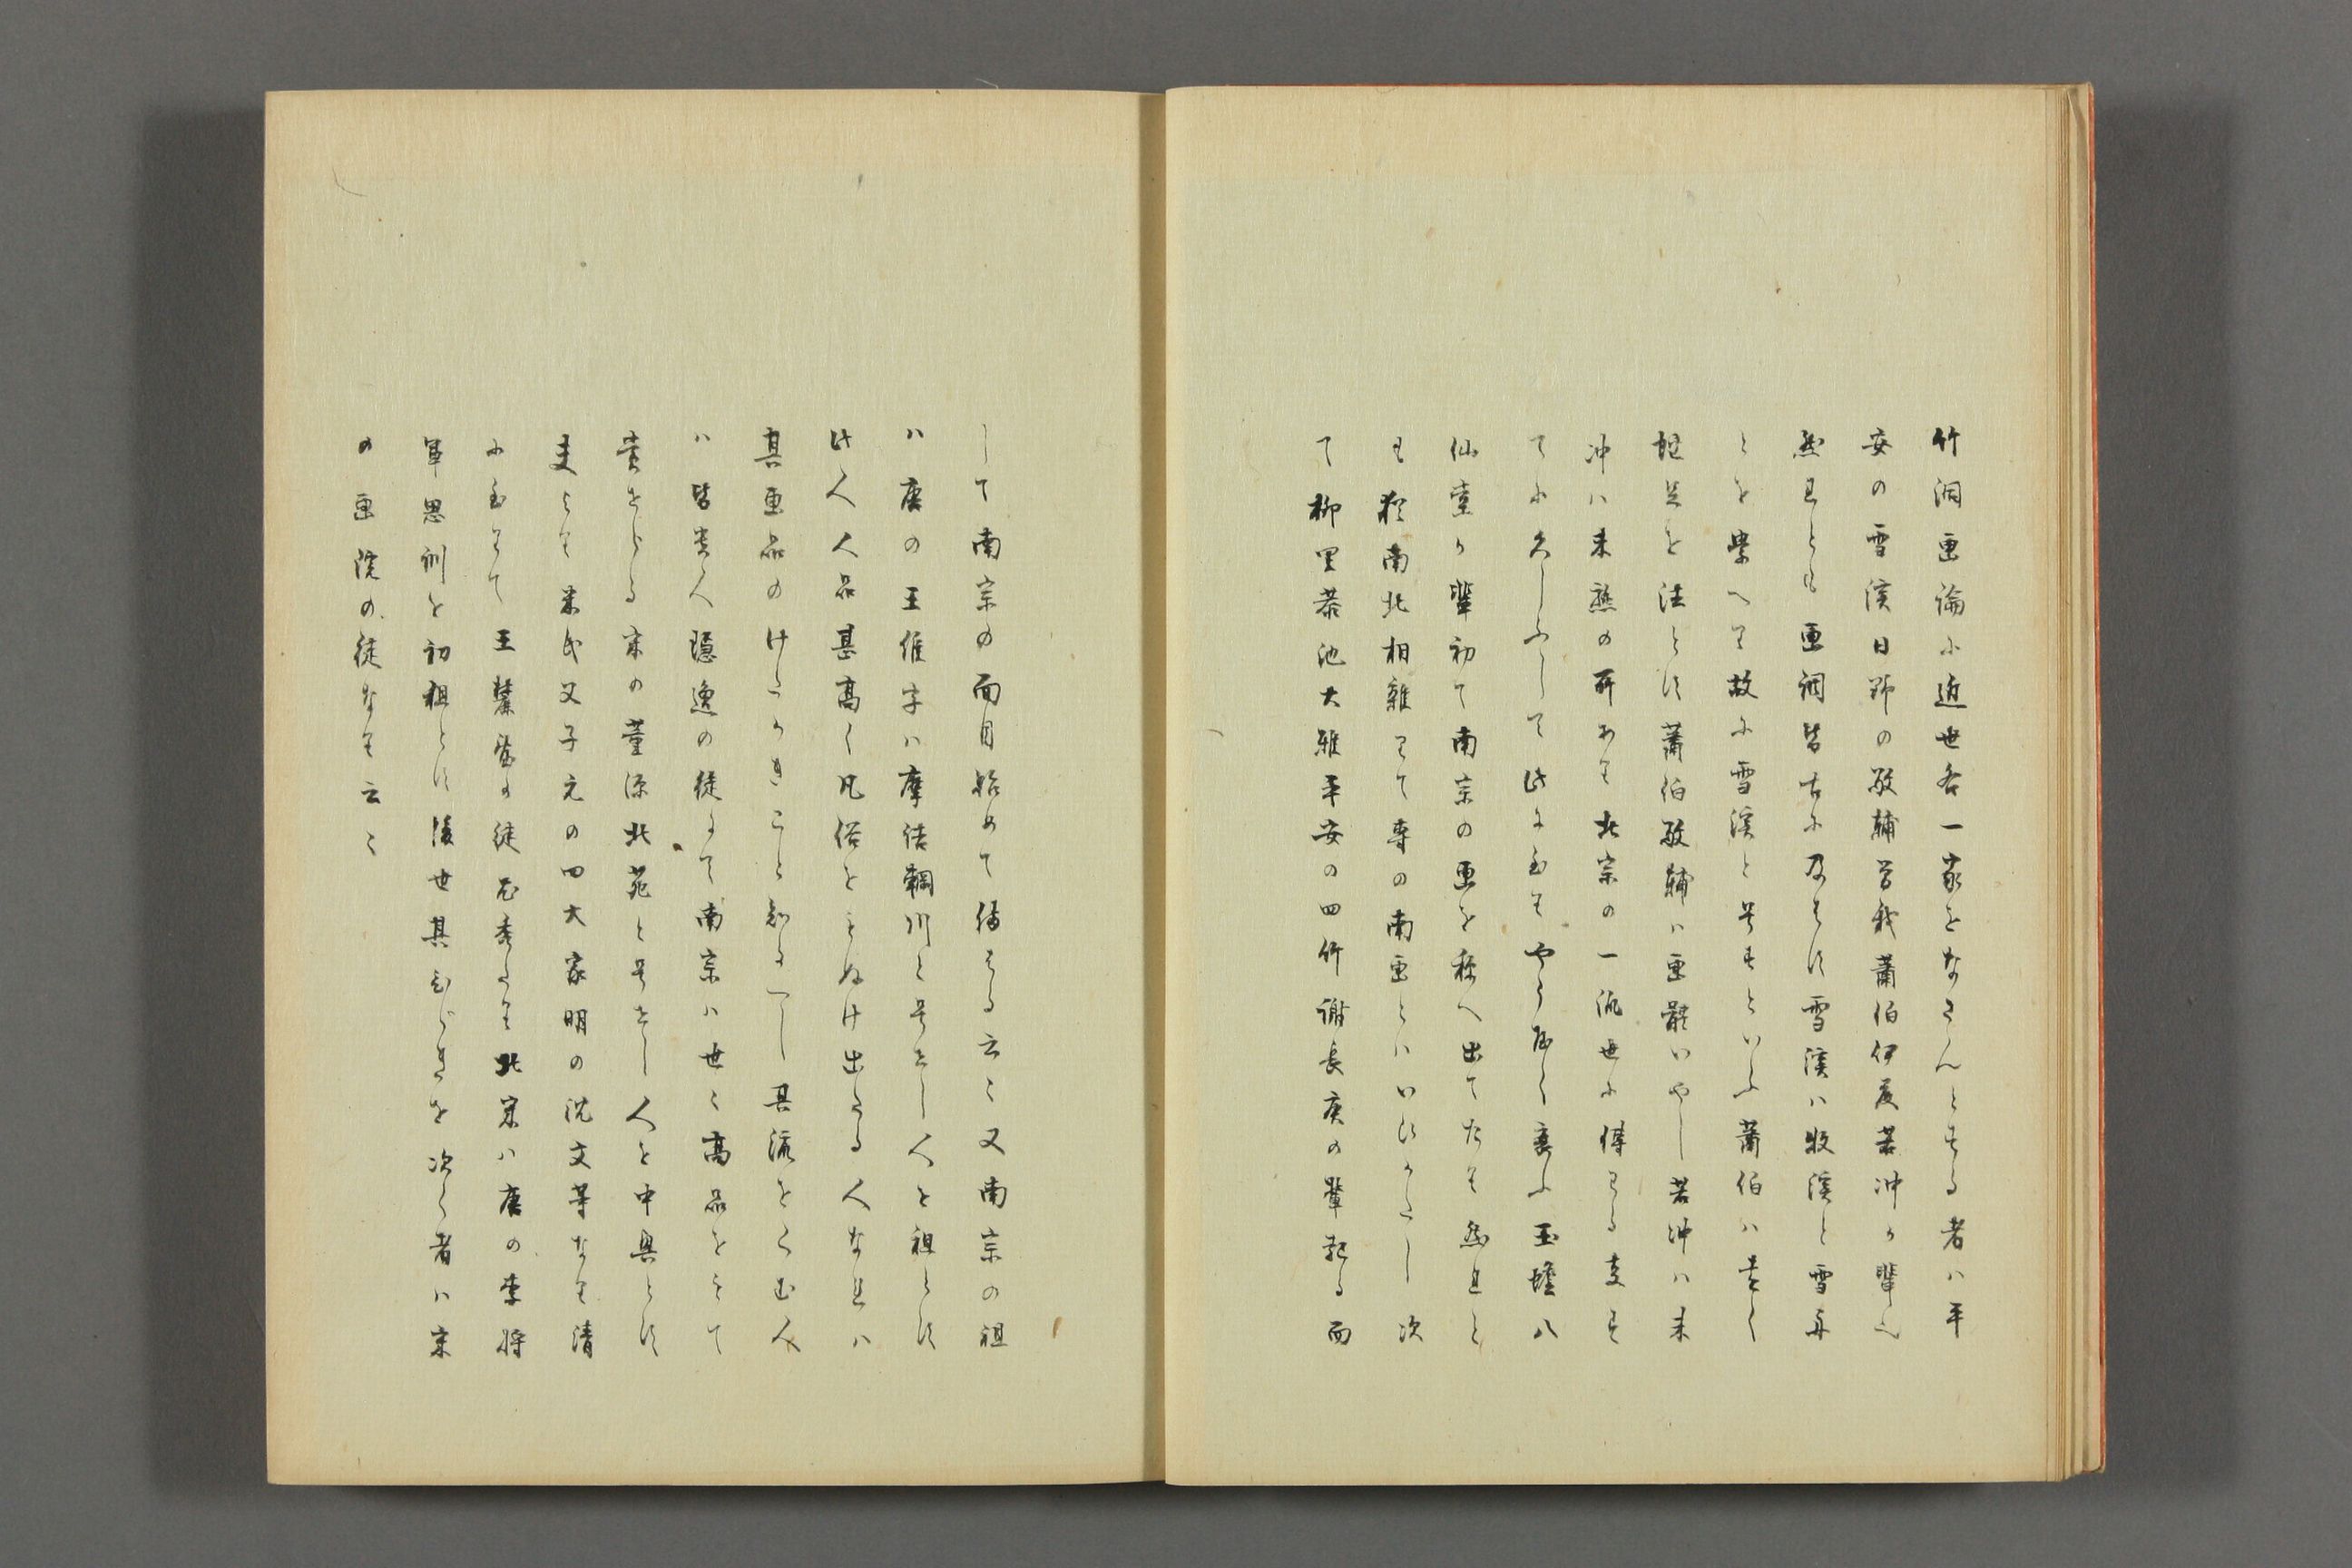 竹洞画論に近世各一家をなさんとする者ハ平
安の雪渓日野の敬輔曽我蕭伯伊藤若冲か輩也
然れとも画調皆古に及はす雪渓ハ牧渓と雪舟
とを学へり故に雪渓と号すといふ蕭伯ハ
蛇足を法とす蕭伯敬輔ハ画躰いやし若冲ハ未
冲ハ未熟の所あり北宗の一流世に傳わる
てに久しふして此に至りやうやく衰ふ玉蟾八
仙堂か輩初て南宗の画を称へ出てたり然れと
も猶南北相雑りて専の南画とハいひかたし次
て柳里恭池大雅平安の四竹謝長庚の輩起る而
して南宗の面目始めて備はる云々又南宗の祖
ハ唐の王維字ハ摩詰輞川と号せし人を祖とす
此人人品甚高く凡俗をぬけ出たる人なれハ
其画品のけたかきこと知るへし其流をくむ人
ハ皆貴人隠逸の徒にて南宗ハ世々高品をもて
貴せらる宋の董源北苑と号せし人を中興とす
米氏父子元の四大家明の沈文等なり清
に至りて王 の徒 秀たり北宗ハ唐の李将
軍思訓を初祖とす後世其 を次く者ハ宋
の画院の徒なり云々